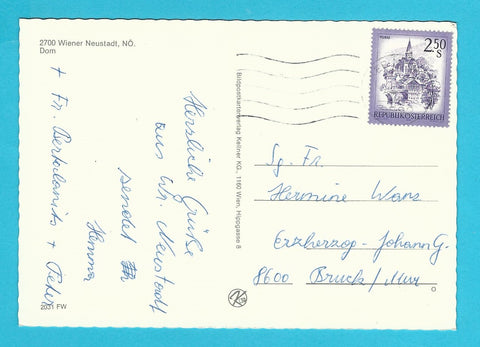 2700 Wiener Neustadt, NÖ.
Dom
Herzliche Grüße
aus Wr. Neustadt
sendet
Hemma
+ Fr. Bertalanits + Peter
2031 FW
Bildpostkartenverlag Kellner KG., 1160 Wien, Hippgasse 8
2.50
S
REPUBLIK ÖSTERREICH
Sg. Fr.
Hermine Wars
Erzherzog-Johann G.
8600 Bruck/Mur